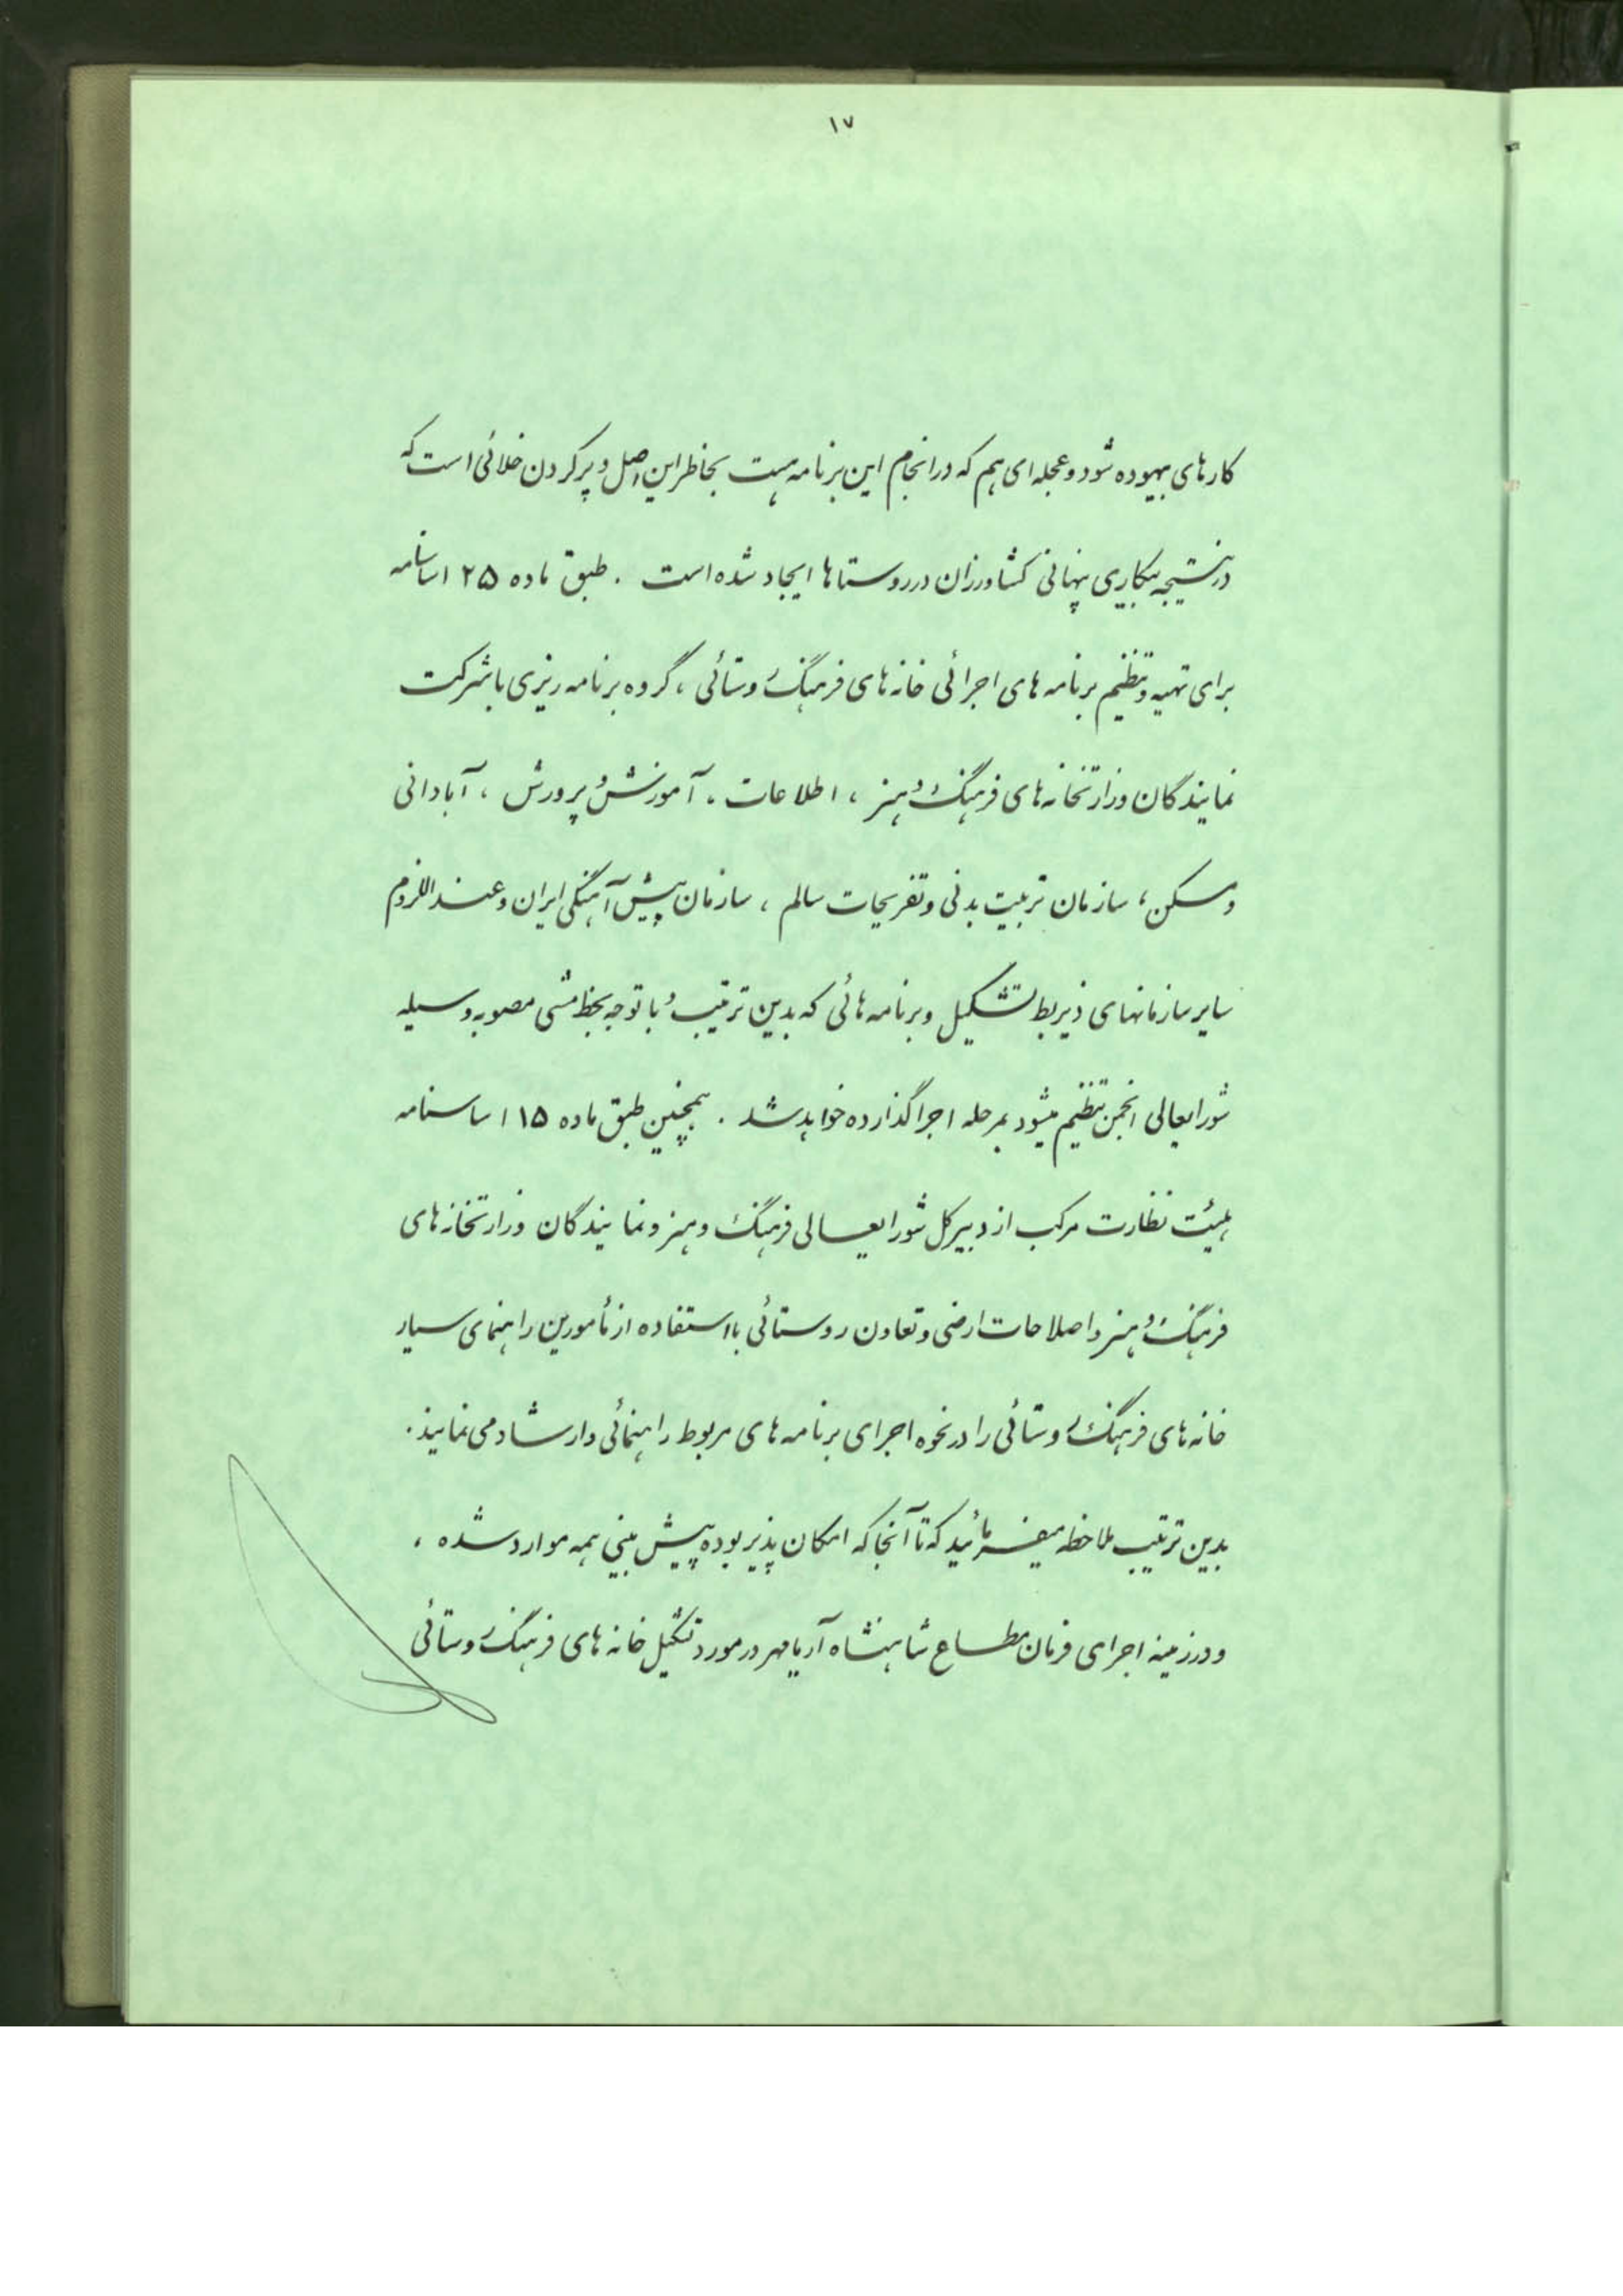 ۱۷
کارهای بیهوده شود و عجله ای هم که در انجام این برنامه هست بخاطر این اصل و پر کردن خلائی است که
در نتیجه بیکاری پنهانی کشاورزان در روستاها ایجاد شده است . طبق ماده ۲۵ اساسنامه
برای تهیه و تنظیم برنامه های اجرائی خانه های فرهنگ روستائی ، گروه برنامه ریزی با شرکت
نمایندگان وزارتخانه های فرهنگ و هنر ، اطلاعات ، آموزش و پرورش ، آبادانی
و مسکن ، سازمان تربیت بدنی و تفریحات سالم ، سازمان پیش آهنگی ایران و عنداللزوم
سایر سازمانهای ذیربط تشکیل و برنامه هائی که بدین ترتیب و با توجه بخط مشی مصوبه وسیله
شورایعالی انجمن تنظیم میشود بمرحله اجرا گذارده خواهد شد . همچنین طبق ماده ۱۵ اساسنامه
هیئت نظارت مرکب از دبیر کل شورایعالی فرهنگ و هنر و نمایندگان وزارتخانه های
فرهنگ و هنر و اصلاحات ارضی و تعاون روستائی با استفاده از مأمورین راهنمای سیار
خانه های فرهنگ روستائی را در نحوه اجرای برنامه های مربوط راهنمائی و ارشاد می نمایند .
بدین ترتیب ملاحظه میفرمائید که تا آنجا که امکان پذیر بوده پیش بینی همه موارد شده ،
و در زمینه اجرای فرمان مطاع شاهنشاه آریامهر در مورد تشکیل خانه های فرهنگ روستائی